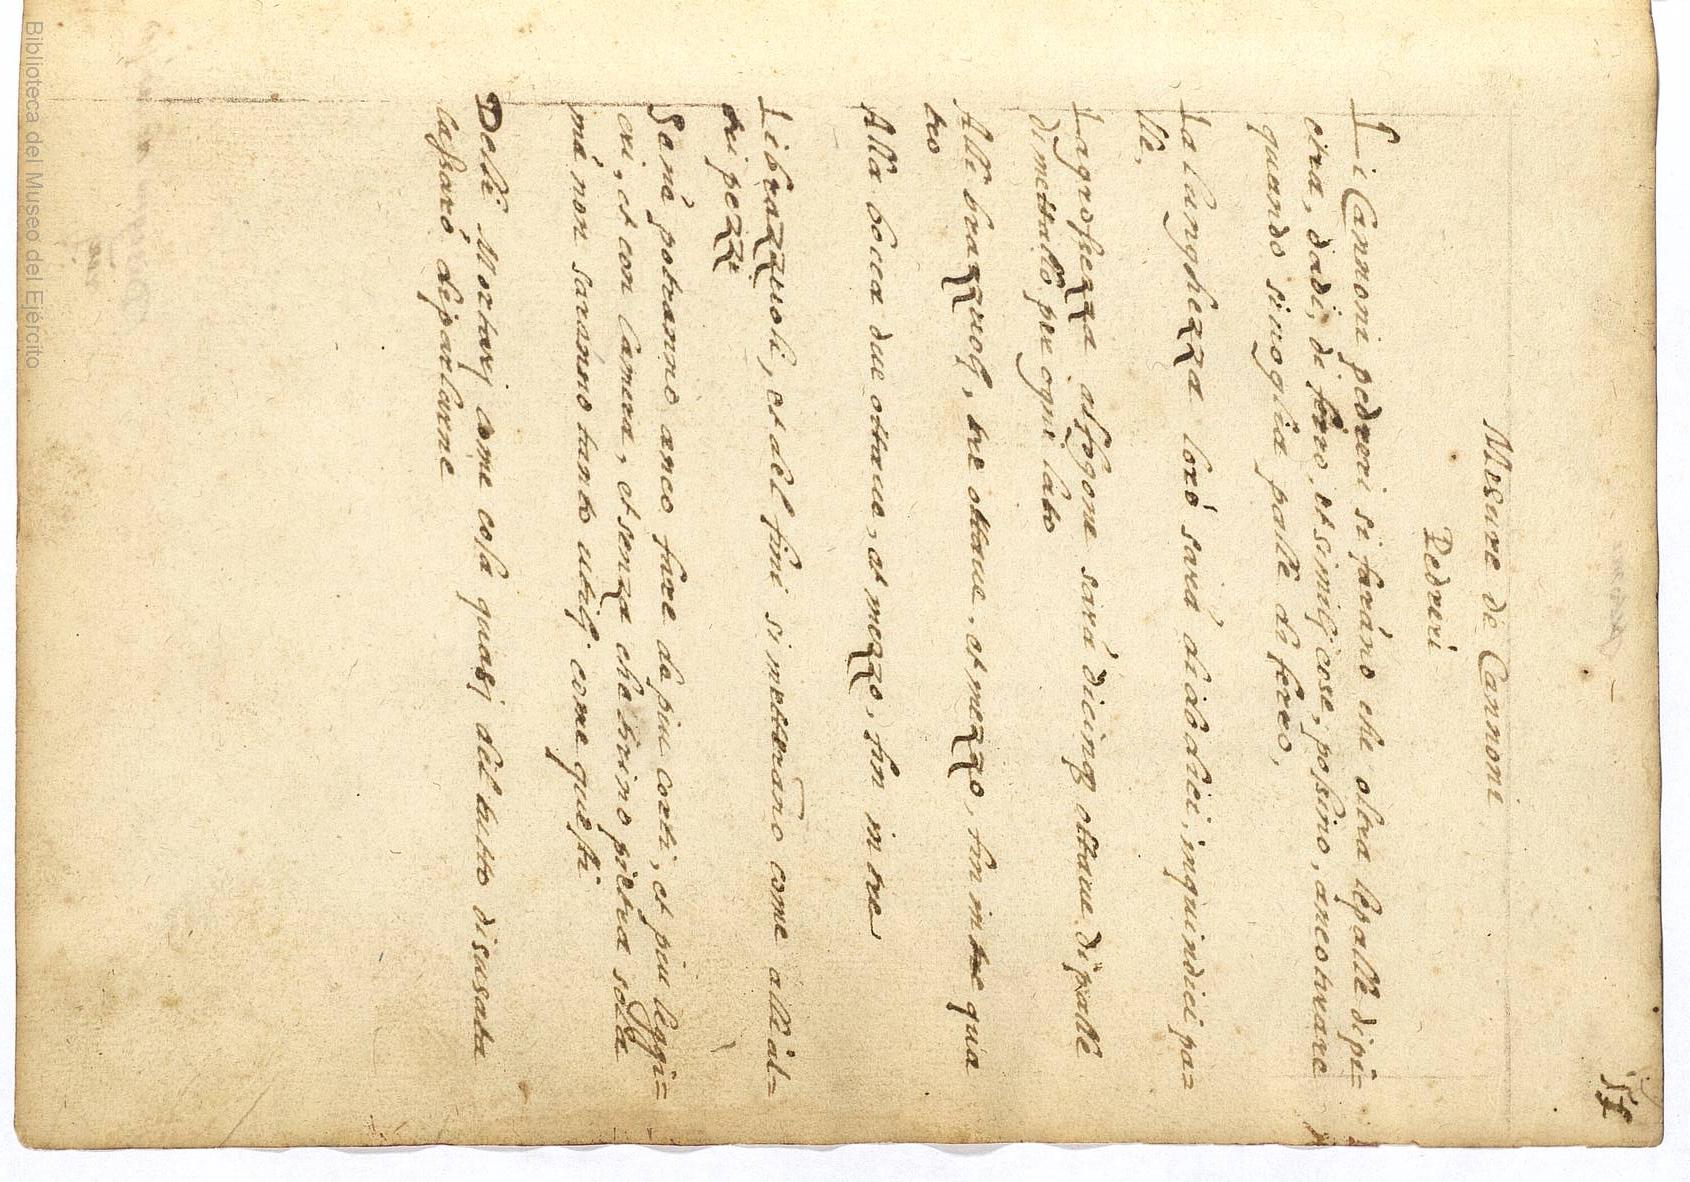 57
Mesure de Cannoni
Pedreri
Li Cannoni pedreri si faráno che oltra le palle di pi=
etra, dadi, di ferro, et simili cose, possino, anco tirare
quando si voglia palle di ferro,
La langhezza loró sará di dodici, in quindici pa=
lle,
La grossezza al fogone sará di cinq ottaue di palle
di mettallo per ogni lato
Alli brazzuoli, tre ottaue, et mezzo, fin in tre qua
tro
Alla bocca due ottaue, et mezzo, fin in tre
Li brazzuoli, et del fini si metteráno come alli al=
tri pezzi
Se né potranno anco fare de piu corti, et piu leggi=
eri, et con Camera, et senza che tirino pietra sola
má non saranno tanto utili come questi
Deli Mortarj come cosa quasj del tutto disusata
lassaró di parlarne
Biblioteca del Museo del Ejército